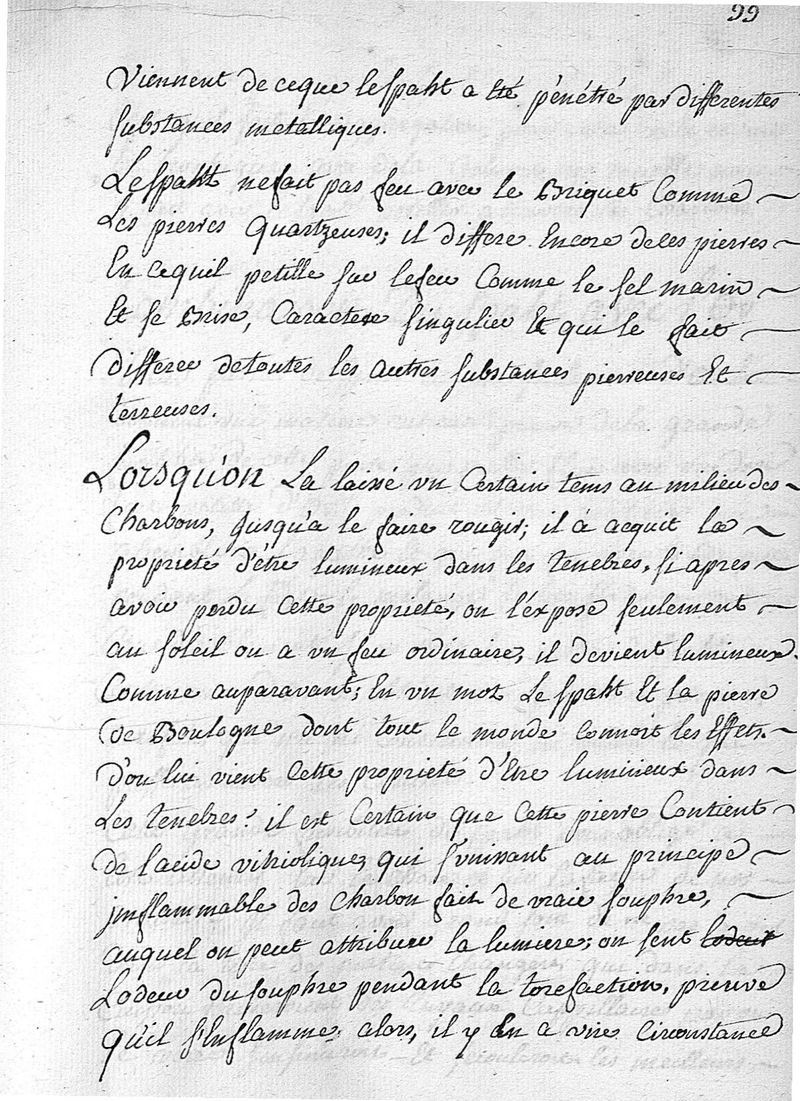 99
Viennent de ceque lespaht a été pénétré par differentes
substances metalliques.
Lespaht nefait pas feu avec le Briquet Comme
Les pierres Quartzeuses; il differe Encore deces pierres
En cequil petille sur lefeu Comme le sel marin
Et se Brise, Caractere singulier Et qui le fait
differer detoutes les autres substances pierreuses Et
terreuses.
Lorsqu'on La laissé vn Certain tems au milieu des
Charbons, jusqu'a le faire rougir; il á acquit la
proprieté d'étre lumineux dans les tenebres, si apres
avoir perdu Cette propriété, on l'éxpose seulement
au soleil ou a vn feu ordinaire, il devient lumineux
Comme auparavant; En vn mot Le spaht Et la pierre
de Boulogne dont tout le monde connoit les Effets.
d'ou lui vient Cette propriété d'Etre lumineux dans
Les tenebres? il est Certain que Cette pierre Contient
de lacide vitriolique, qui s'vnissant au principe
jnflammable des Charbon fait de vraie souphre,
auquel on peut attribuer la lumiere; on sent lodeur
Lodeur du souphre pendant la torefaction, preuve
qu'il s'Enflamme, alors, il y En a vne Circonstance